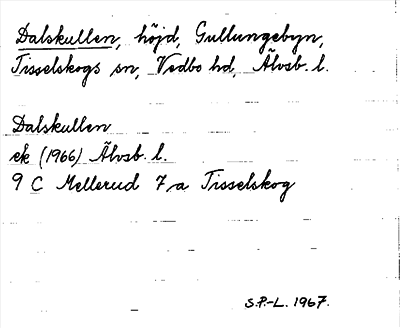 Dalskullen, höjd, Gullungebyn,
Tisselskogs sn, Vedbo hd, Älvsb. l.
Dalskullen
ek (1966) Älvsb. l.
9 C Mellerud 7 a Tisselskog
S.P.-L. 1967.